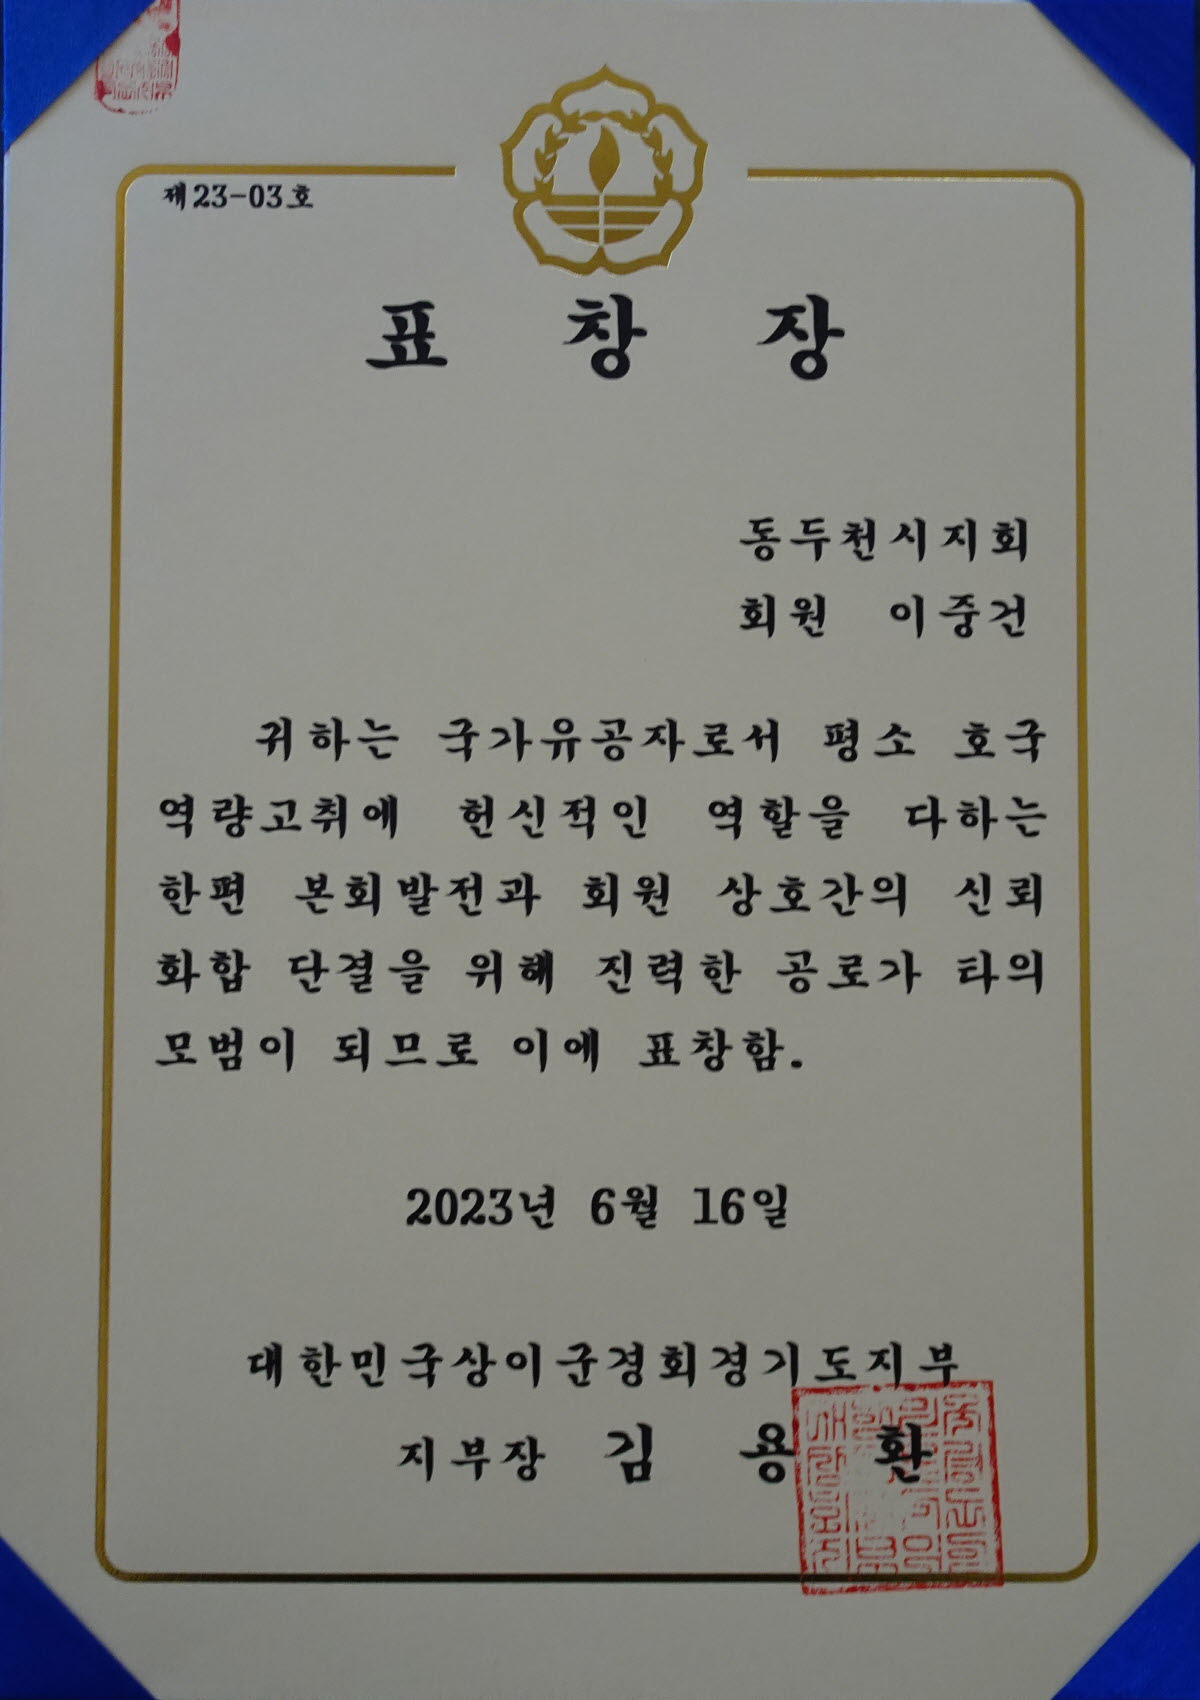 제23-03호
표 창 장
동두천시지회
회원 이중건
귀하는 국가유공자로서 평소 호국
역량고취에 헌신적인 역할을 다하는
한편 본회발전과 회원 상호간의 신뢰
화합 단결을 위해 진력한 공로가 타의
모범이 되므로 이에 표창함.
2023년 6월 16일
대한민국상이군경회경기도지부
지부장 김 용 환